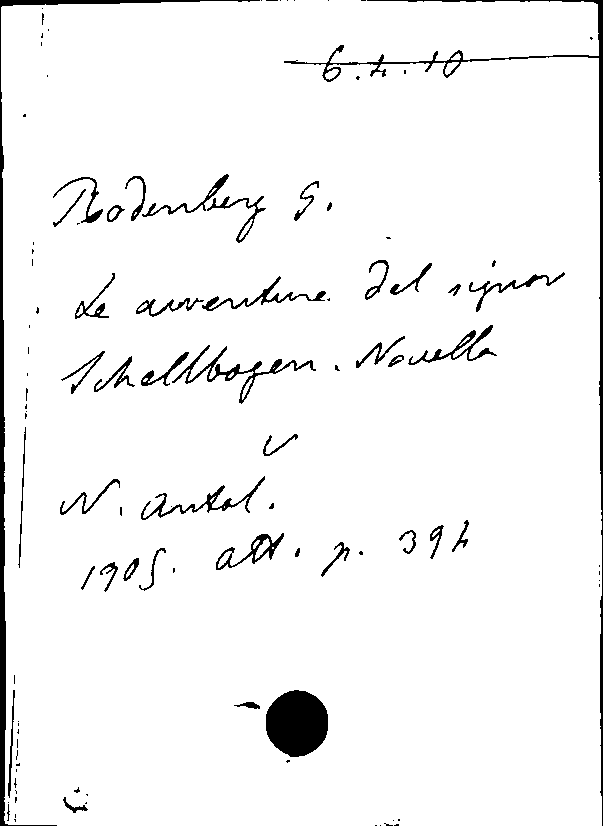 6.4.10
Rodenberg G.
Le avventure del signor
Schellbogen. Novella
N. Antol.
1905. ott. p. 394